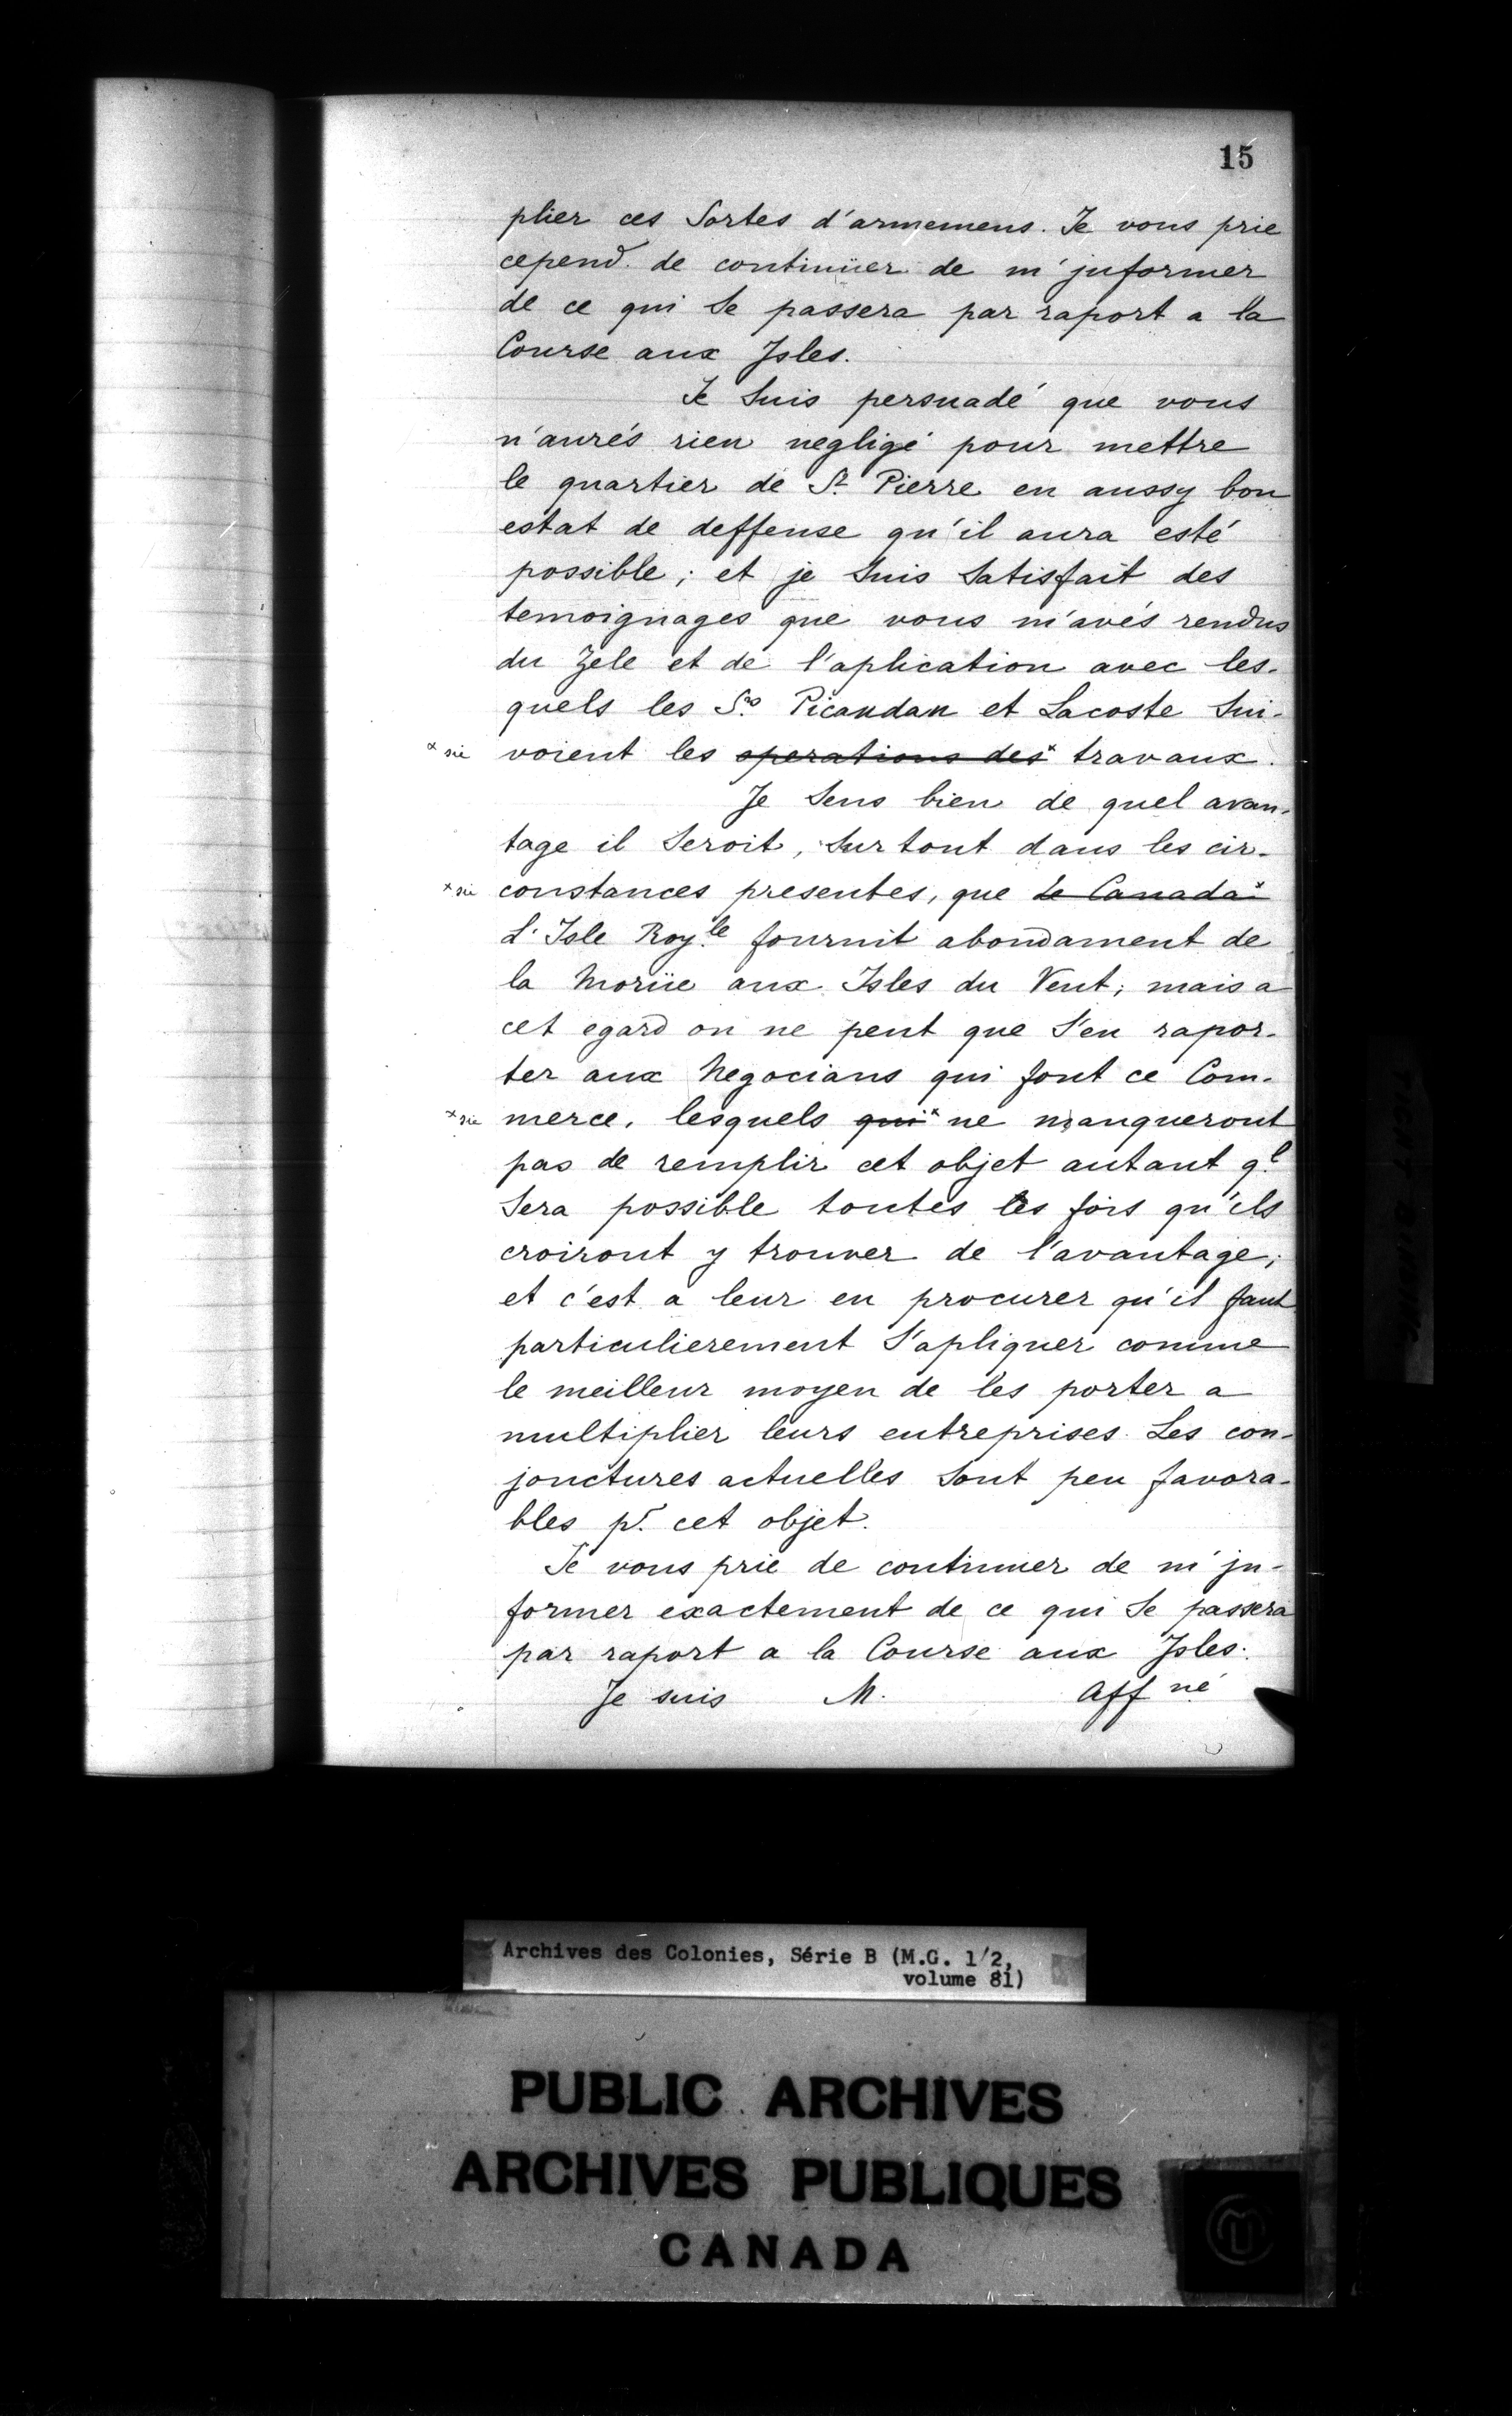 15
plier ces Sortes d'armemens. Je vous prie
cepend. de continüer de m'jnformer
de ce qui Se passera par raport a la
Course aux Jsles.
Je Suis persuadé que vous
n'aurés rien negligé pour mettre
le quartier de St. Pierre en aussy bon
estat de deffense qu'il aura esté
possible; et je Suis Satisfait des
temoignages que vous m'avés rendus
du Zele et de l'aplication avec les-
quels les Srs. Picaudan et Lacoste Sui-
x sic voient les operations des x travaux.
Je Sens bien de quel avan-
tage il Seroit, Surtout dans les cir-
x sic constances presentes, que le Canada x
L'Isle Roy.le fournit abondament de
la Moriie aux Isles du Vent; mais a
cet egard on ne peut que S'en rapor-
ter aux Negocians qui font ce Com-
x sic merce, lesquels qui x ne manqueront
pas de remplir cet objet autant q.l
Sera possible toutes les fois qu'ils
croiront y trouver de l'avantage;
et c'est a leur en procurer qu'il faut
particulierement S'apliquer comme
le meilleur moyen de les porter a
multiplier leurs entreprises. Les con-
jonctures actuelles Sont peu favora-
bles pr. cet objet.
Je vous prie de continuer de m'jn-
former exactement de ce qui Se passera
par raport a la Course aux Jsles.
Je suis M. Aff né
Archives des Colonies, Série B (M.G. 1/2,
volume 81)
PUBLIC ARCHIVES
ARCHIVES PUBLIQUES
CANADA